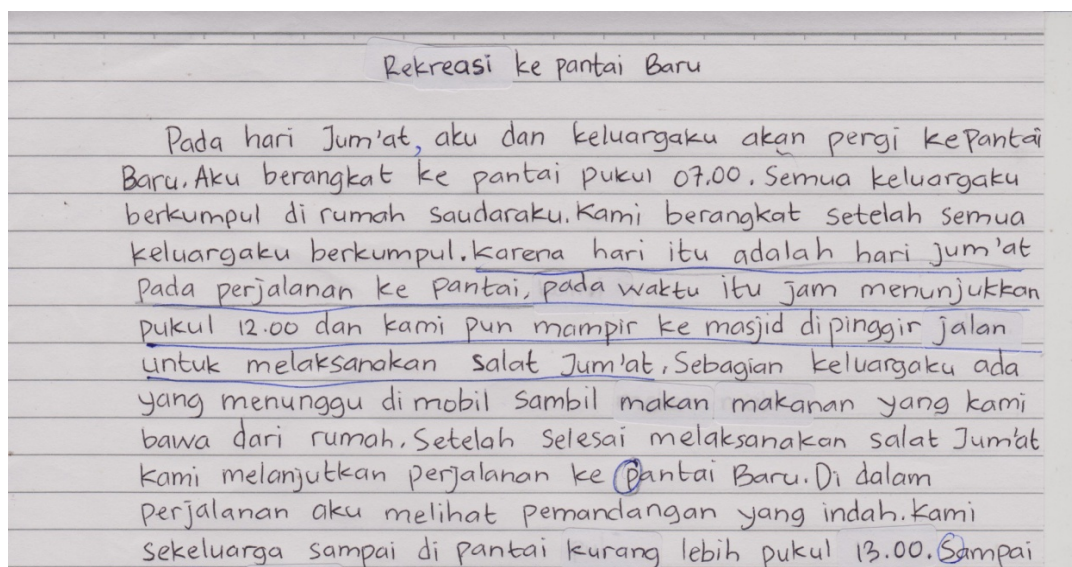 Rekreasi ke pantai Baru
Pada hari Jum'at, aku dan keluargaku akan pergi kePantai
Baru. Aku berangkat ke pantai pukul 07.00. Semua keluargaku
berkumpul di rumah saudaraku. Kami berangkat setelah semua
keluargaku berkumpul. Karena hari itu adalah hari jum'at
pada perjalanan ke pantai, pada waktu itu jam menunjukkan
pukul 12.00 dan kami pun mampir ke masjid dipinggir jalan
untuk melaksanakan salat Jum'at. Sebagian keluargaku ada
yang menunggu di mobil sambil makan makanan yang kami
bawa dari rumah. Setelah selesai melaksanakan salat Jum'at
kami melanjutkan perjalanan ke pantai Baru. Di dalam
perjalanan aku melihat pemandangan yang indah. Kami
sekeluarga sampai di pantai kurang lebih pukul 13.00. Sampai